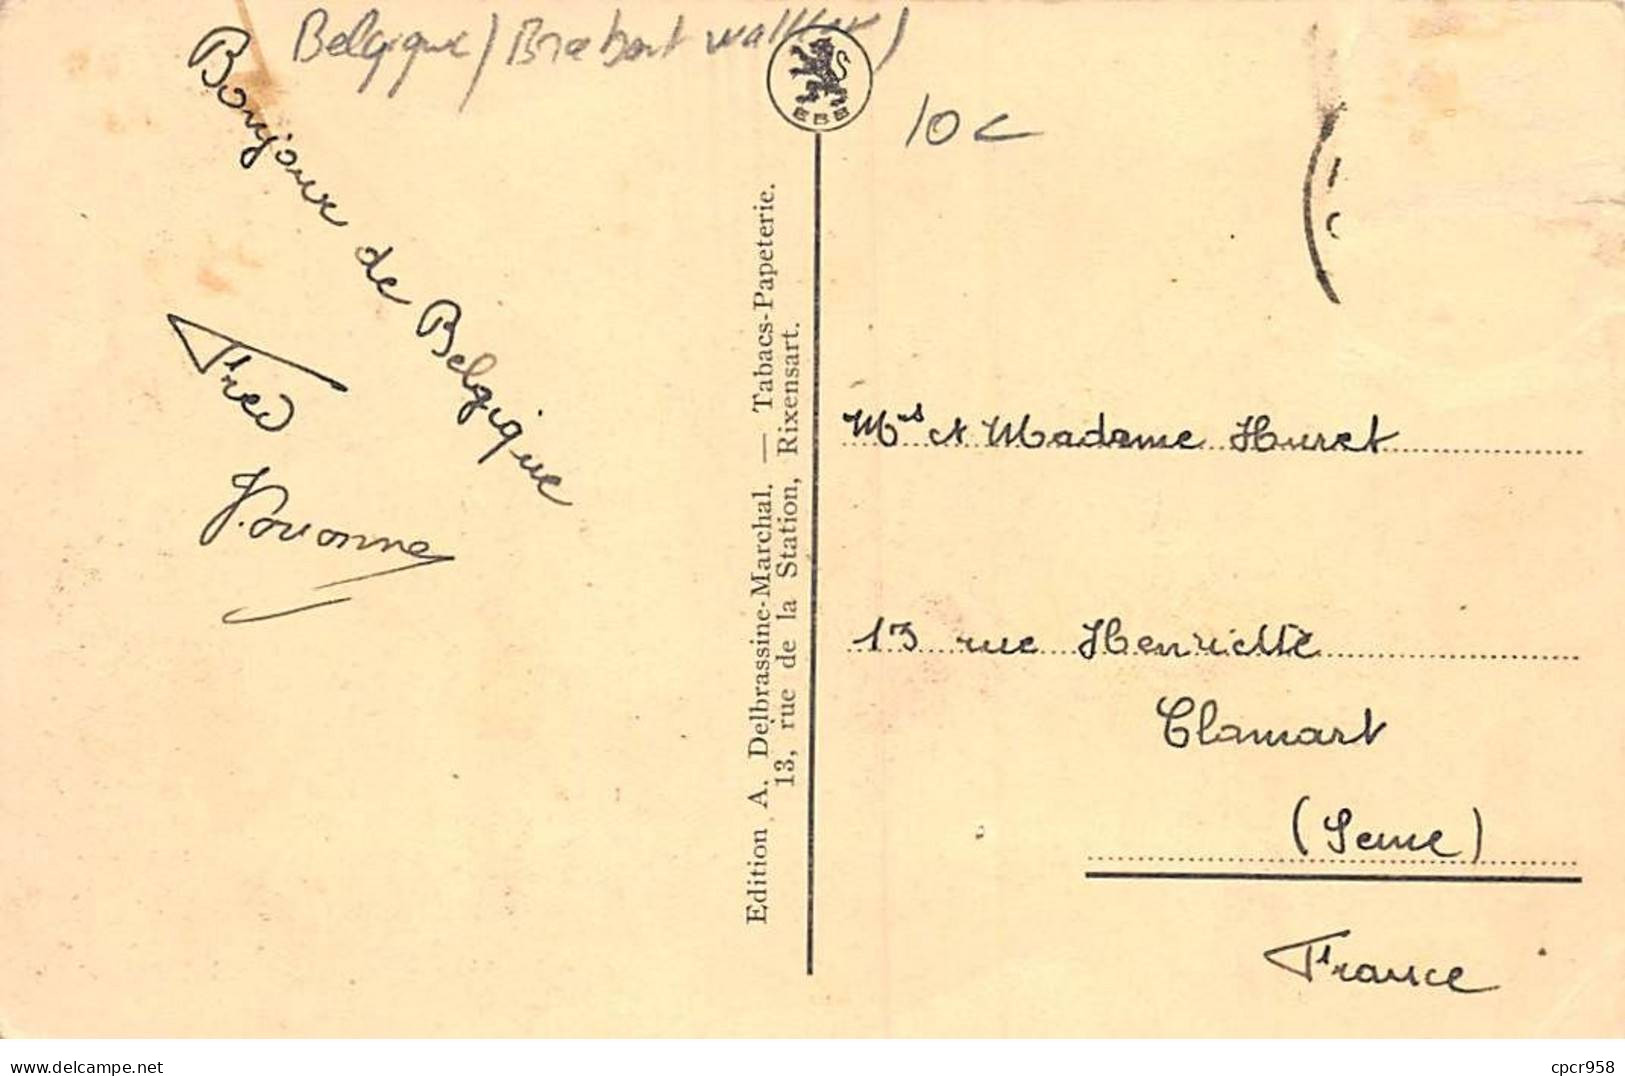 Belgique / Brabant wallon)
10c
EBB
Bonjour de Belgique
Fred
Yvonne
Edition A. Delbrassine-Marchal. — Tabacs-Papeterie.
13, rue de la Station, Rixensart.
Mrs et Madame Huret
13 rue Henriette
Clamart
(Seine)
France
https://www.delcampe.net
cpcr958